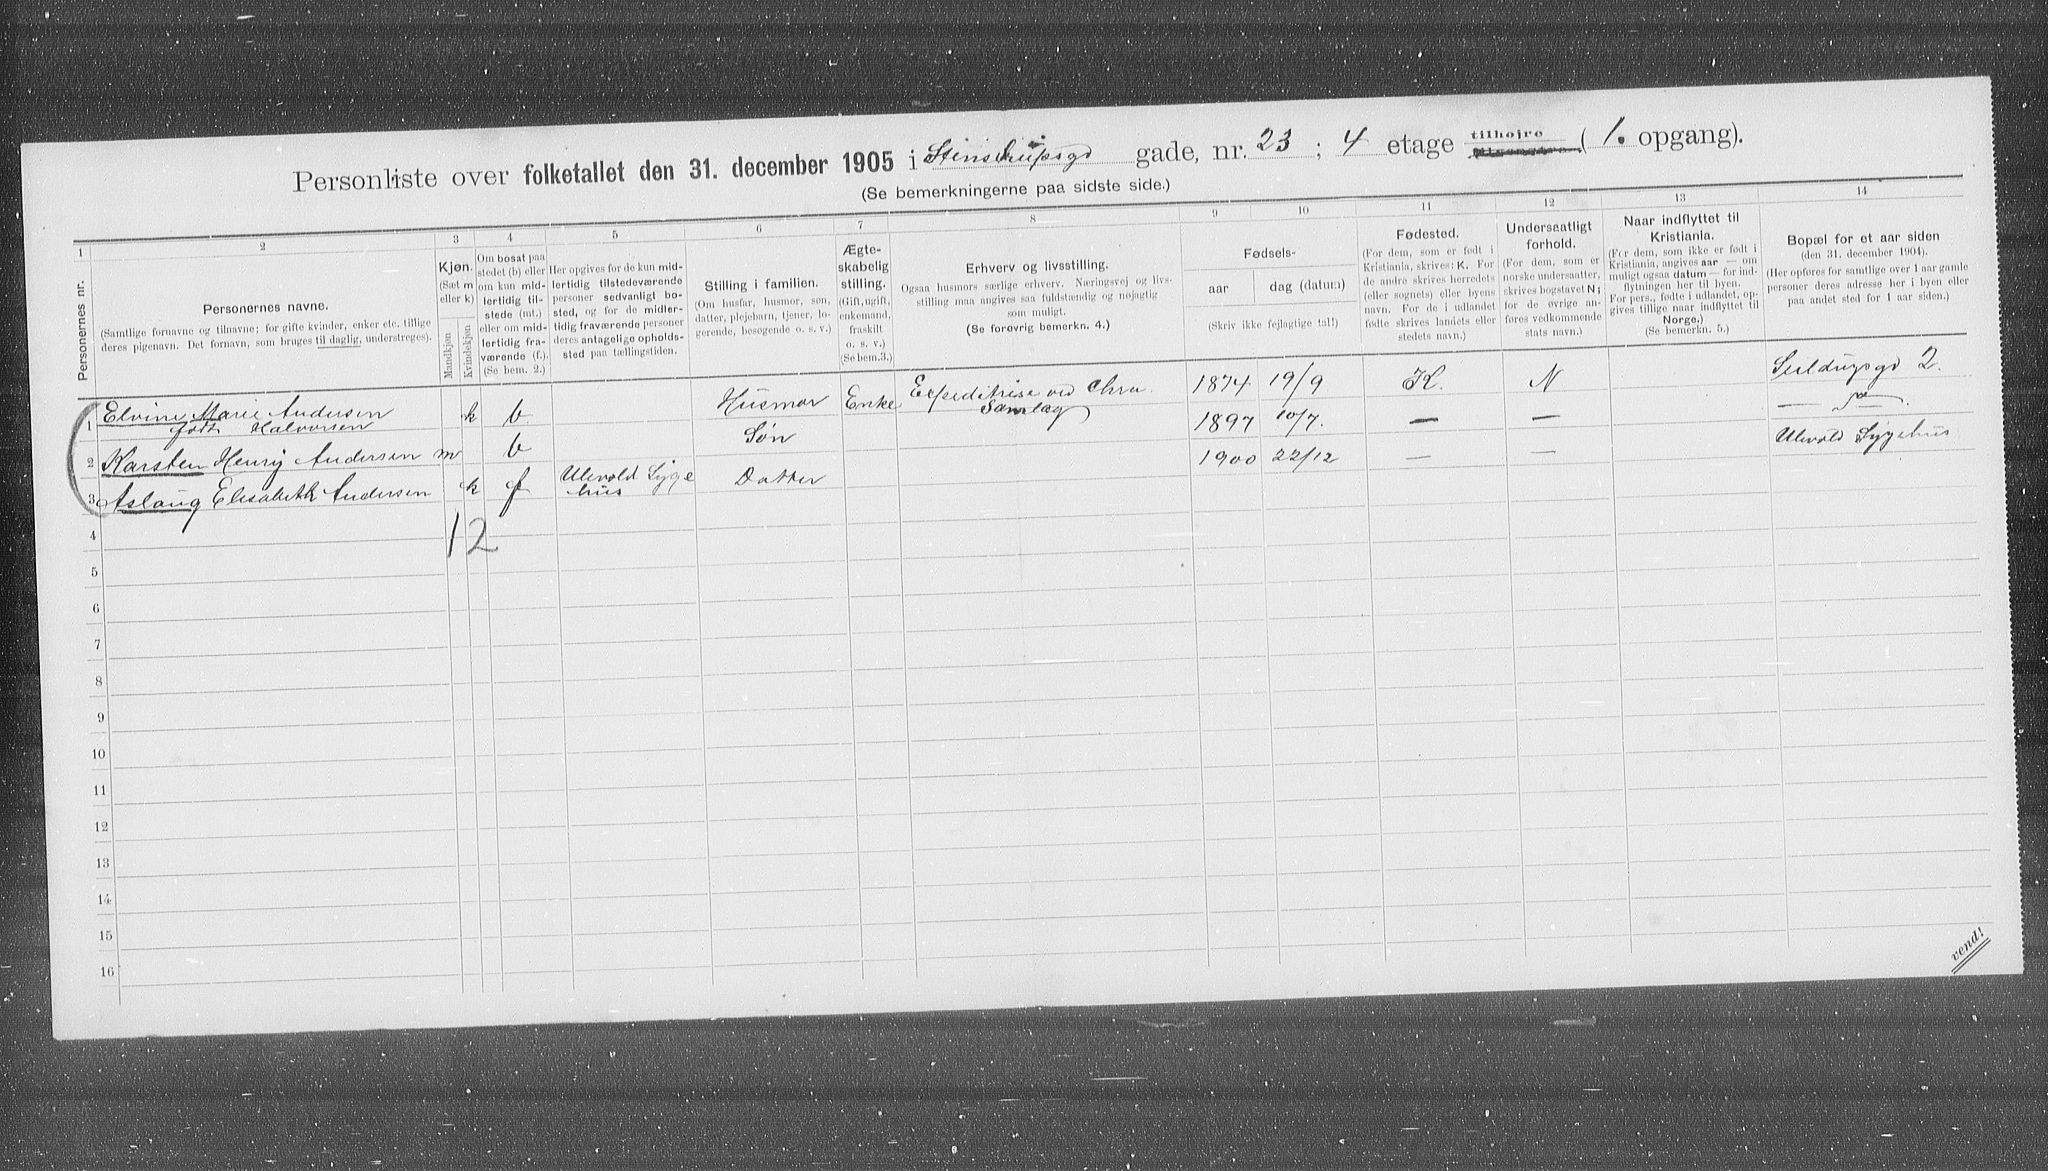 Personliste over folketallet den 31. december 1905 i Stenstrupsgd gade, nr. 23 ; 4 etage tilhøjre ( 1. opgang).
(Se bemerkningerne paa sidste side.)
1 2 3 4 5 6 7 8 9 10 11 12 13 14
Personernes nr.
Personernes navne.
(Samtlige fornavne og tilnavne; for gifte kvinder, enker etc. tillige
deres pigenavn. Det fornavn, som bruges til daglig, understreges).
Kjøn.
(Sæt m
eller k)
Mandkjøn
Kvindekjøn
Om bosat paa
stedet (b) eller
om kun mid-
lertidig til-
stede (mt.)
eller om mid-
lertidig fra-
værende (f.).
(Se bem. 2.)
Her opgives for de kun mid-
lertidig tilstedeværende
personer sedvanligt bo-
sted, og for de midler-
tidig fraværende personer
deres antagelige opholds-
sted paa tællingstiden.
Stilling i familien.
(Om husfar, husmor, søn,
datter, plejebarn, tjener, lo-
gerende, besøgende o. s. v.)
Ægte-
skabelig
stilling.
(Gift, ugift,
enkemand,
fraskilt
o. s. v.)
(Se bem.3.)
Erhverv og livsstilling.
Ogsaa husmors særlige erhverv. Næringsvej og livs-
stilling maa angives saa fuldstændig og nøjagtig
som muligt.
(Se forøvrig bemerkn. 4.)
Fødsels-
aar dag (datum)
(Skriv ikke fejlagtige tal!)
Fødested.
(For dem, som er født i
Kristiania, skrives: K. For
de andre skrives herredets
(eller sognets) eller byens
navn. For de i udlandet
fødte skrives landets eller
stedets navn.)
Undersaatligt
forhold.
(For dem, som er
norske undersaatter,
skrives bogstavet N;
for de øvrige an-
føres vedkommende
stats navn.)
Naar indflyttet til
Kristiania.
(For dem, som ikke er født i
Kristiania, angives aar — om
muligt ogsaa datum — for ind-
flytningen her til byen.
For pers., fødte i udlandet, op-
gives tillige naar indflyttet til
Norge.)
(Se bemerkn. 5.)
Bopæl for et aar siden
(den 31. december 1904).
(Her opføres for samtlige over 1 aar gamle
personer deres adresse her i byen eller
paa andet sted for 1 aar siden.)
1 Elvine Marie Andersen k b Husmor Enke Expeditrise ved Chra. 1874 19/9 K. N 2.
født Halvorsen Samlag
2 Karsten Henrij Andersen m b Søn 1897 10/7. — — —
3 Aslaug Elisabeth Andersen k f Ulevold Syge Datter 1900 22/12 — — Ulevold Sygehus
hus
12
4
5
6
7
8
9
10
11
12
13
14
15
16
vend!